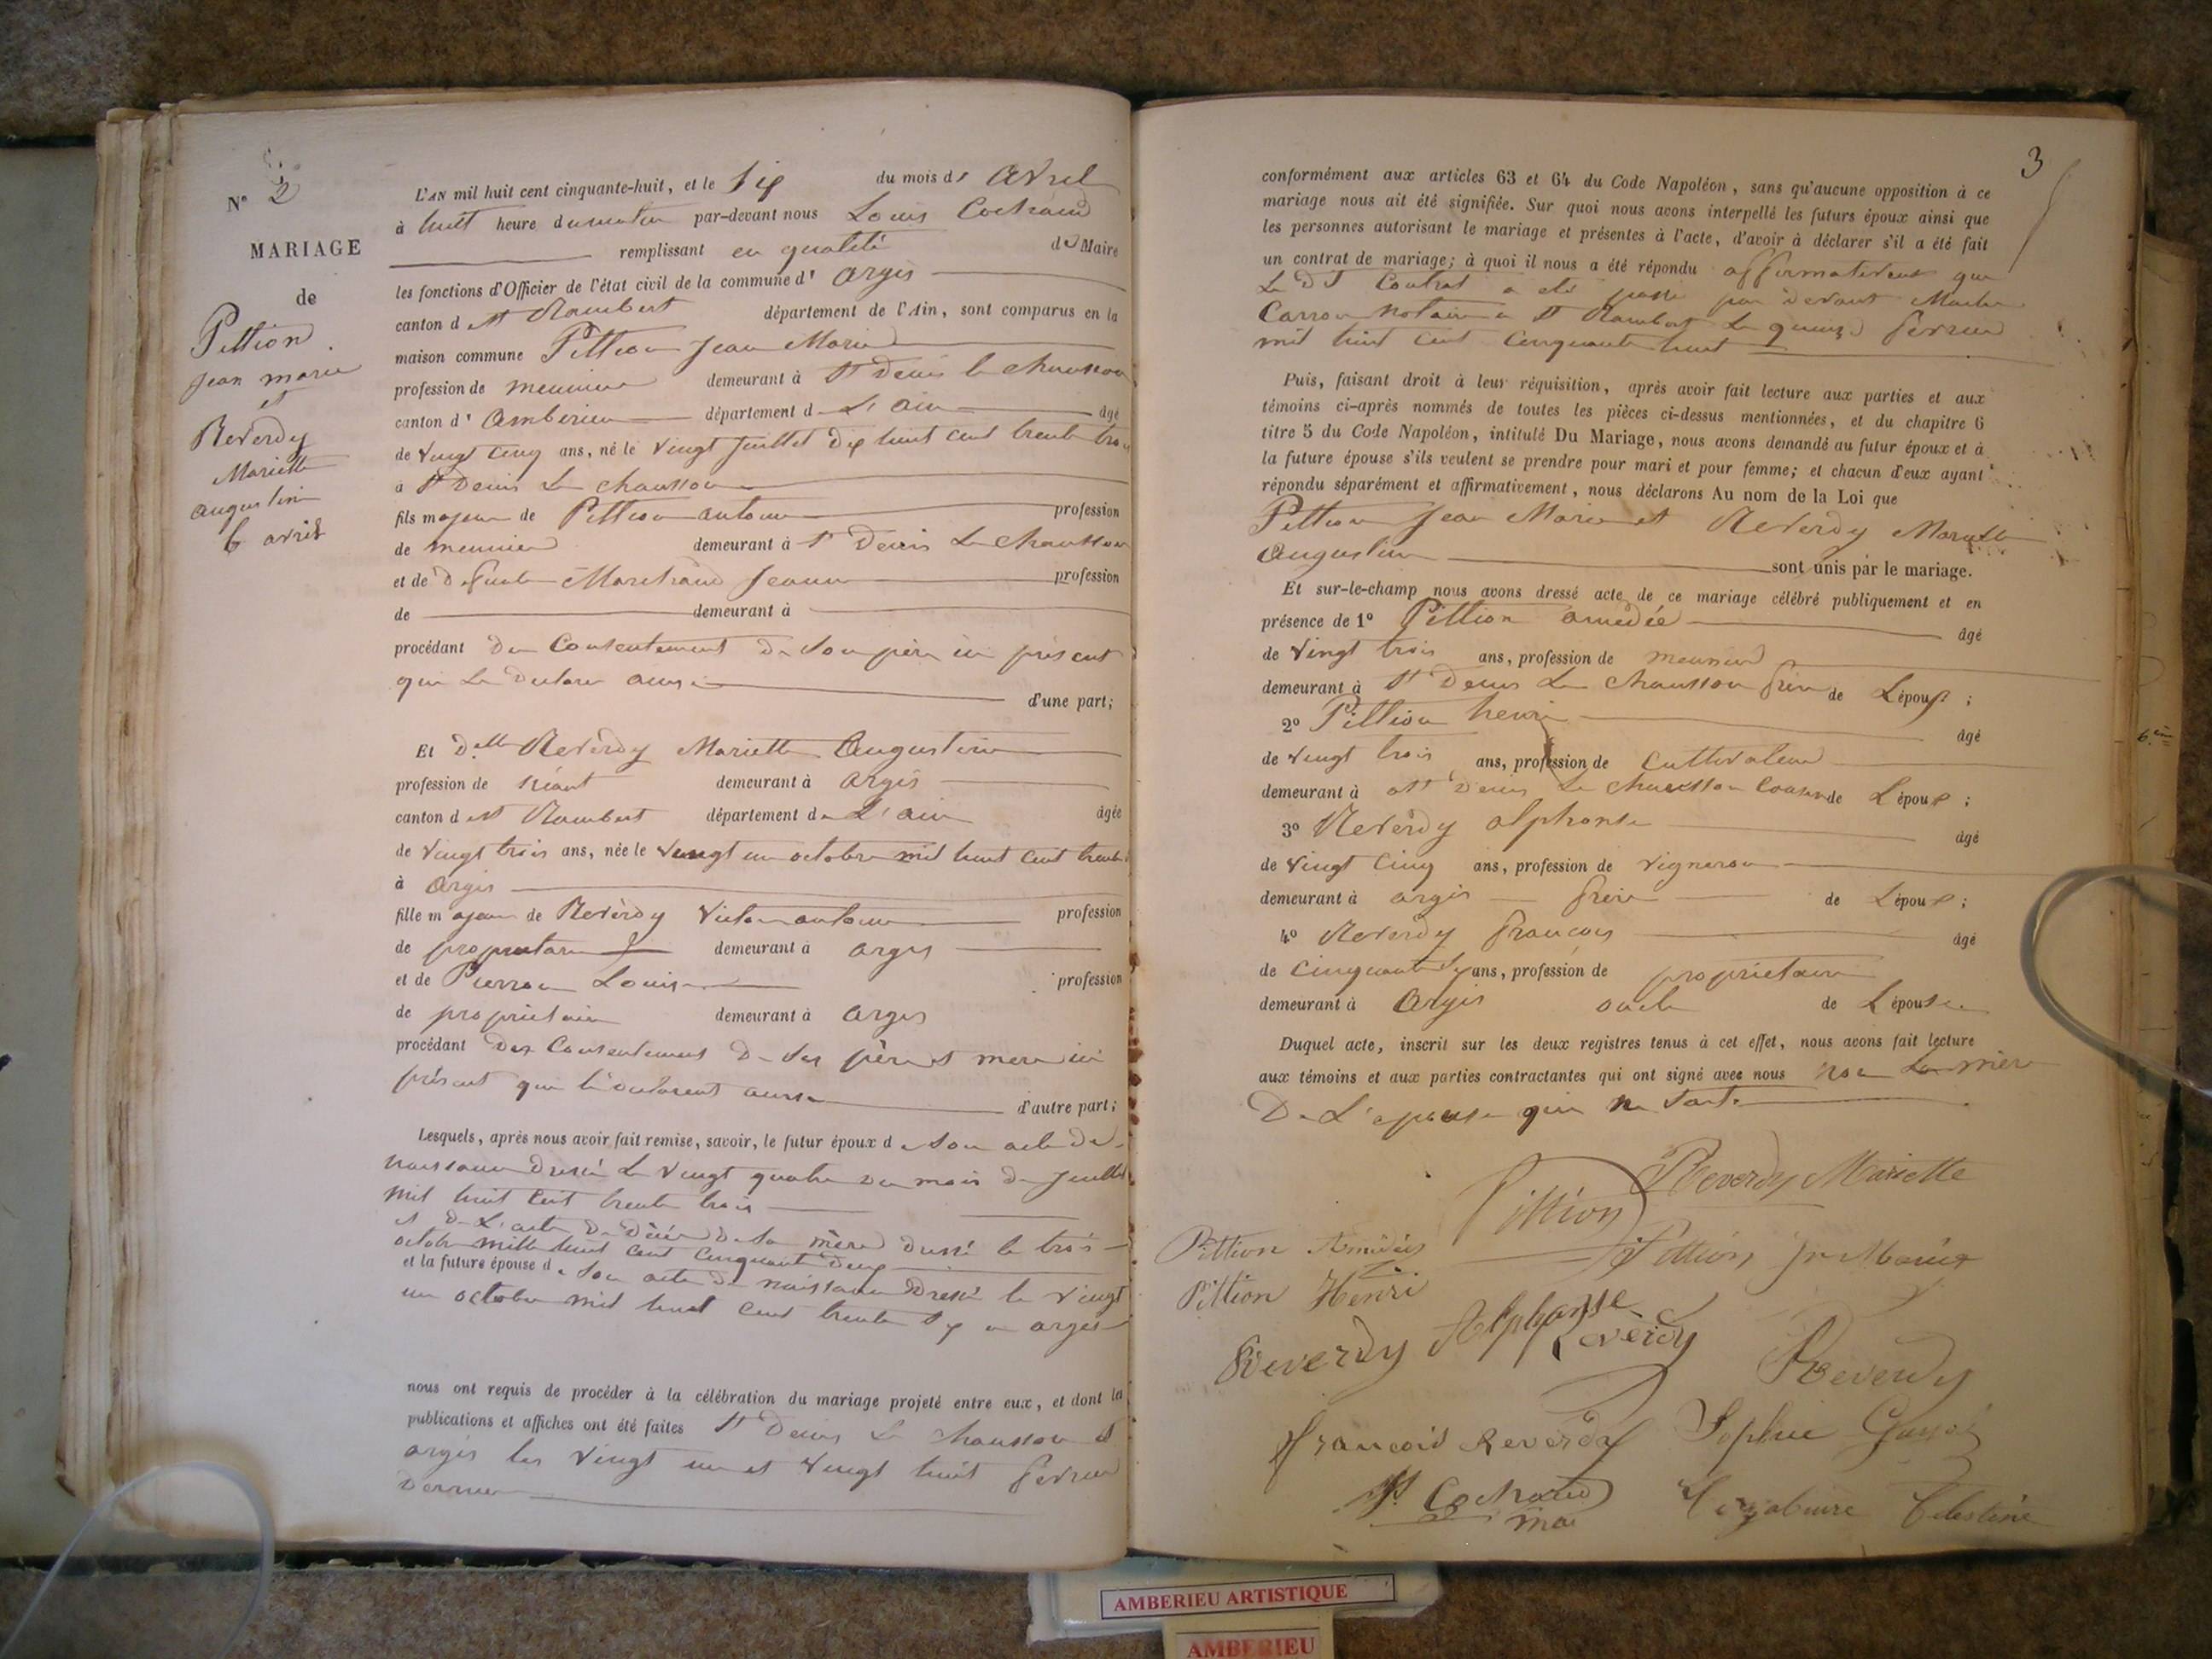 N° 2
MARIAGE
de
Pittion
Jean marie
et
Reverdy
Mariette
augustine
6 avril
L'AN mil huit cent cinquante-huit, et le Six du mois d' Avril
à huit heure du matin par-devant nous Louis Cochraud
remplissant en qualité de Maire
les fonctions d'Officier de l'état civil de la commune d' argis
canton de St Rambert département de l'Ain, sont comparus en la
maison commune Pittion Jean Marie
profession de meunier demeurant à St Denis le chausson
canton d' Amberieu département de L'ain âgé
de vingt cinq ans, né le vingt Juillet dix huit cent trente trois
à St Denis Le chausson
fils majeur de Pittion antoine profession
de meunier demeurant à St Denis Le chausson
et de Defunte Marchand Jeanne profession
de demeurant à
procédant du Consentement de Son père ici présent
qui Le Declare ainsi d'une part;
Et Delle Reverdy Mariette Augustine
profession de néant demeurant à argis
canton de St Rambert département de L'ain âgée
de vingt trois ans, née le vingt un octobre mil huit cent trente
à argis
fille majeure de Reverdy Victor antoine profession
de propriétaire demeurant à argis
et de Pierron Louise profession
de propriétaire demeurant à argis
procédant des Consentement De Ses père et mere ici
présent qui le déclarent ainsi d'autre part;
Lesquels, après nous avoir fait remise, savoir, le futur époux de Son acte de
naissance dressé Le vingt quatre du mois de Juillet
mil huit cent trente trois
et de L'acte De Décès De Sa mère dressé le trois
octobre mille huit cent cinquante deux
et la future épouse de Son acte de naissance Dressé le vingt
un octobre mil huit cent trente Six a argis
nous ont requis de procéder à la célébration du mariage projeté entre eux, et dont les
publications et affiches ont été faites St Denis Le chausson et
argis les vingt un et vingt huit fevrier
Dernier
3
conformément aux articles 63 et 64 du Code Napoléon, sans qu'aucune opposition à ce
mariage nous ait été signifiée. Sur quoi nous avons interpellé les futurs époux ainsi que
les personnes autorisant le mariage et présentes à l'acte, d'avoir à déclarer s'il a été fait
un contrat de mariage; à quoi il nous a été répondu affirmativement que
Le Dt Contrat a eté passé par devant Maitre
Carron Notaire a St Rambert Le quinze fevrier
mil huit cent cinquante huit
Puis, faisant droit à leur réquisition, après avoir fait lecture aux parties et aux
témoins ci-après nommés de toutes les pièces ci-dessus mentionnées, et du chapitre 6
titre 5 du Code Napoléon, intitulé Du Mariage, nous avons demandé au futur époux et à
la future épouse s'ils veulent se prendre pour mari et pour femme; et chacun d'eux ayant
répondu séparément et affirmativement, nous déclarons Au nom de la Loi que
Pittion Jean Marie et Reverdy Mariette
Augustine sont unis par le mariage.
Et sur-le-champ nous avons dressé acte de ce mariage célébré publiquement et en
présence de 1° Pittion amedée âgé
de vingt trois ans, profession de meunier
demeurant à St Denis Le Chausson frère de L'époux ;
2° Pittion henri âgé
de vingt trois ans, profession de Cultivateur
demeurant à St Denis Le chausson Cousin de L'époux ;
3° Reverdy alphonse âgé
de vingt cinq ans, profession de vigneron
demeurant à argis frère de L'épouse ;
4° Reverdy françois âgé
de cinquante Six ans, profession de propriétaire
demeurant à Argis oncle de L'épouse
Duquel acte, inscrit sur les deux registres tenus à cet effet, nous avons fait lecture
aux témoins et aux parties contractantes qui ont signé avec nous non La mère
De L'epouse qui ne Sait
Reverdy Mariette
Pittion
Pittion Amédée
Pittion Jn Marie
Pittion Henri
Reverdy Alphonse
Reverdy
Reverdy
François Reverdy Sophie
Ls Cochraud
mai
Celestine
6.em
AMBERIEU ARTISTIQUE
AMBERIEU